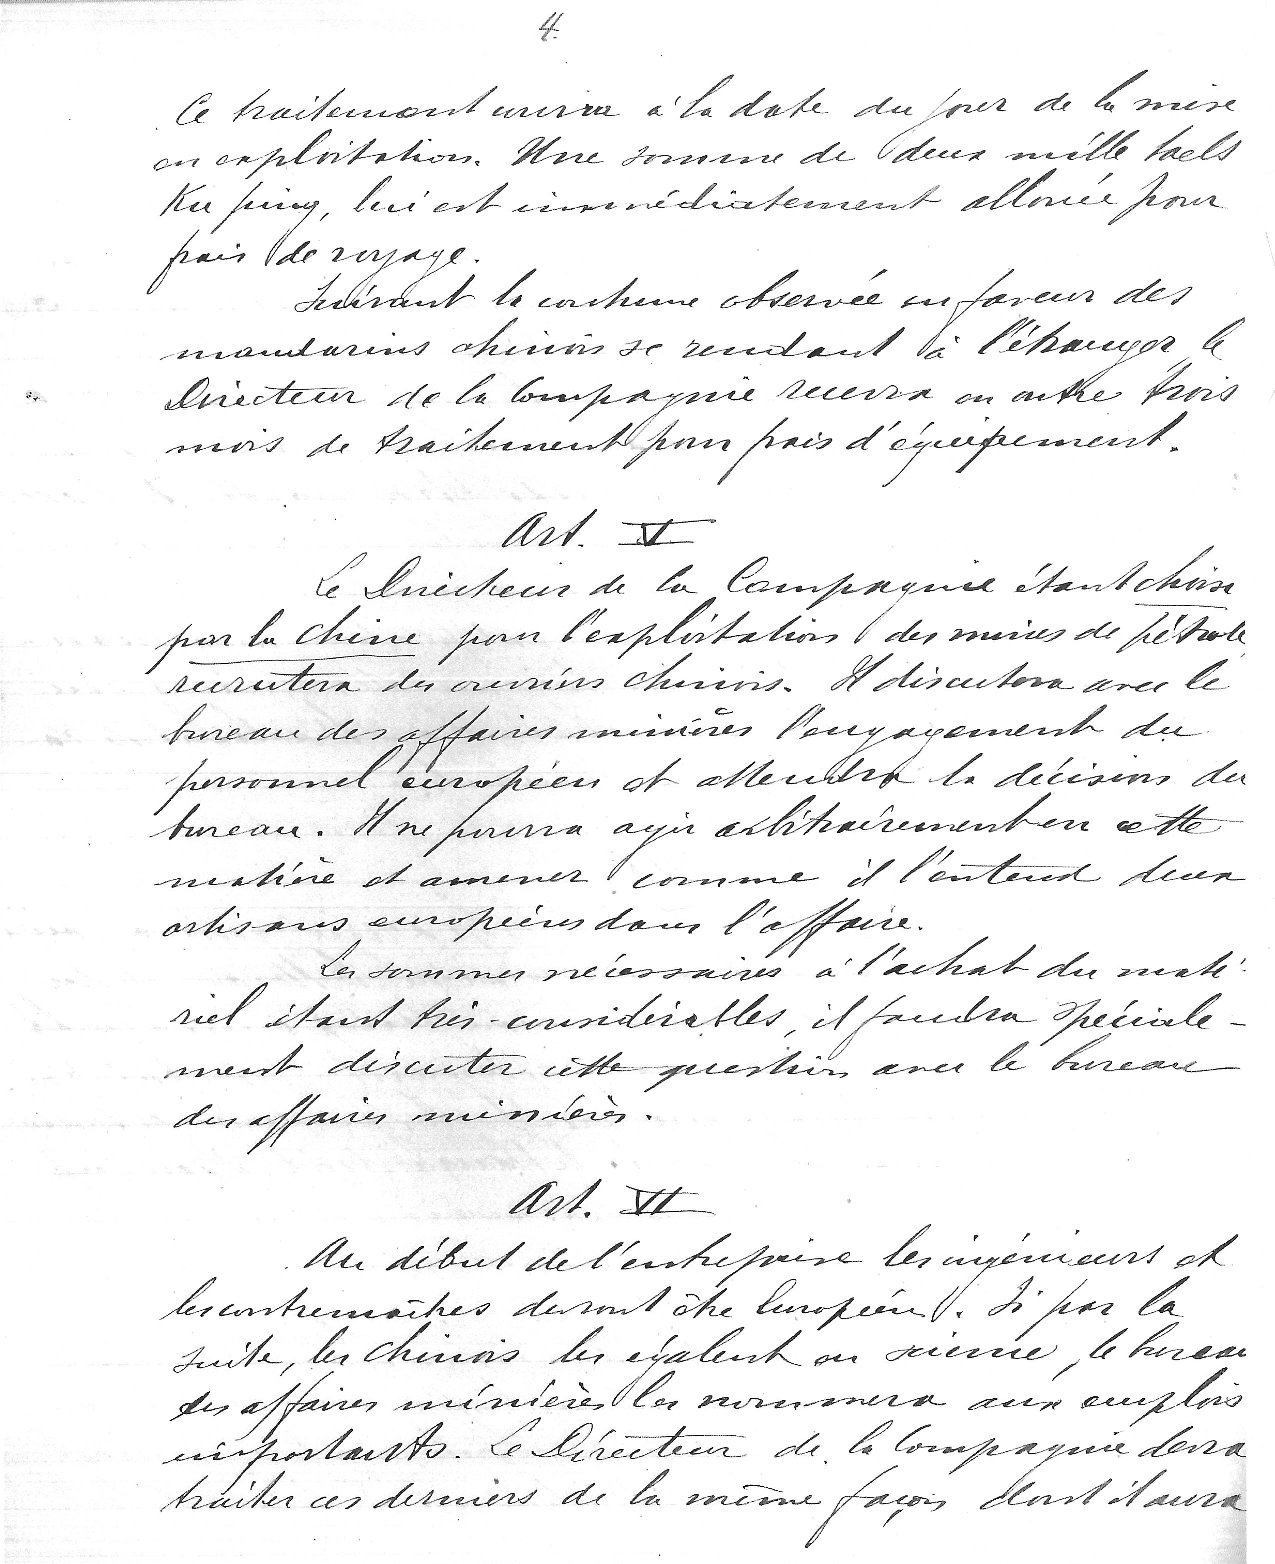 4.
Ce traitement courra à la date du jour de la mise
en exploitation. Une somme de deux mille taels
Ku ping, lui est immédiatement allouée pour
frais de voyage.
Suivant la coutume observée en faveur des
mandarins chinois se rendant à l'étranger, le
Directeur de la Compagnie recevra en outre trois
mois de traitement pour frais d'équipement.
Art. V
Le Directeur de la Compagnie étant choisi
par la Chine pour l'exploitation des mines de pétrole,
recrutera des ouvriers chinois. Il discutera avec le
bureau des affaires minières l'engagement du
personnel européen et attendra la décision du
bureau. Il ne pourra agir arbitrairement en cette
matière et amener comme il l'entend deux
artisans européens dans l'affaire.
Les sommes nécessaires à l'achat du maté-
riel étant très-considérables, il faudra spéciale-
ment discuter cette question avec le bureau
des affaires minières.
Art. VI
Au début de l'entreprise les ingénieurs et
les contremaîtres devront être Européens. Si par la
suite, les Chinois les égalent en science, le bureau
des affaires minières les nommera aux emplois
importants. Le Directeur de la Compagnie devra
traiter ces derniers de la même façon dont il aura